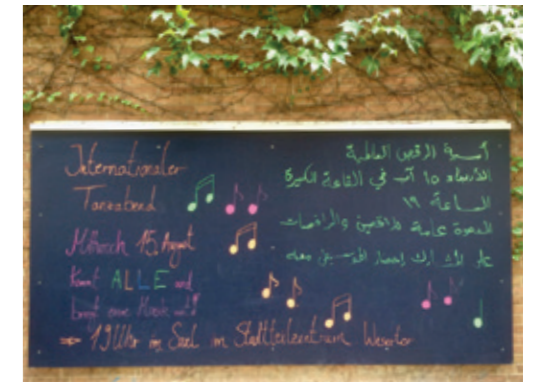 Internationaler
Tanzabend
Mittwoch 15. August
Kommt ALLE und
bringt eure Musik mit!
⇒ 19 Uhr im Saal im Stadtteilzentrum Wesertor
أمسية الرقص العالمية
الأربعاء ١٥ آب في القاعة الكبيرة
الساعة ١٩
الدعوة عامة للراقصين والراقصات
على المشارك إحضار الموسيقى معه